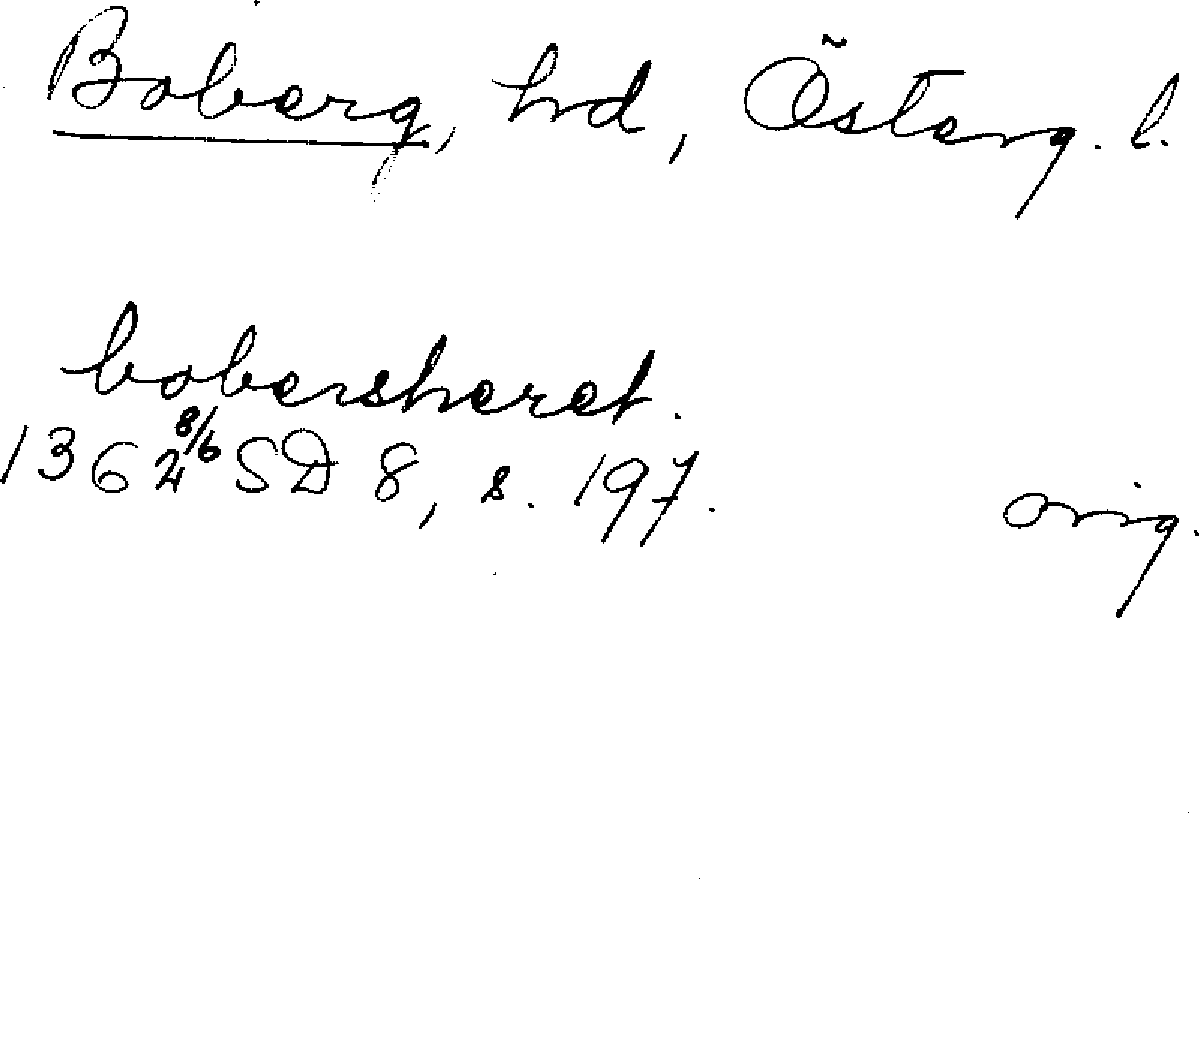 Boberg, hd, Österg. l.
bobersheret.
1362 8/6 SD 8, s. 197. orig.